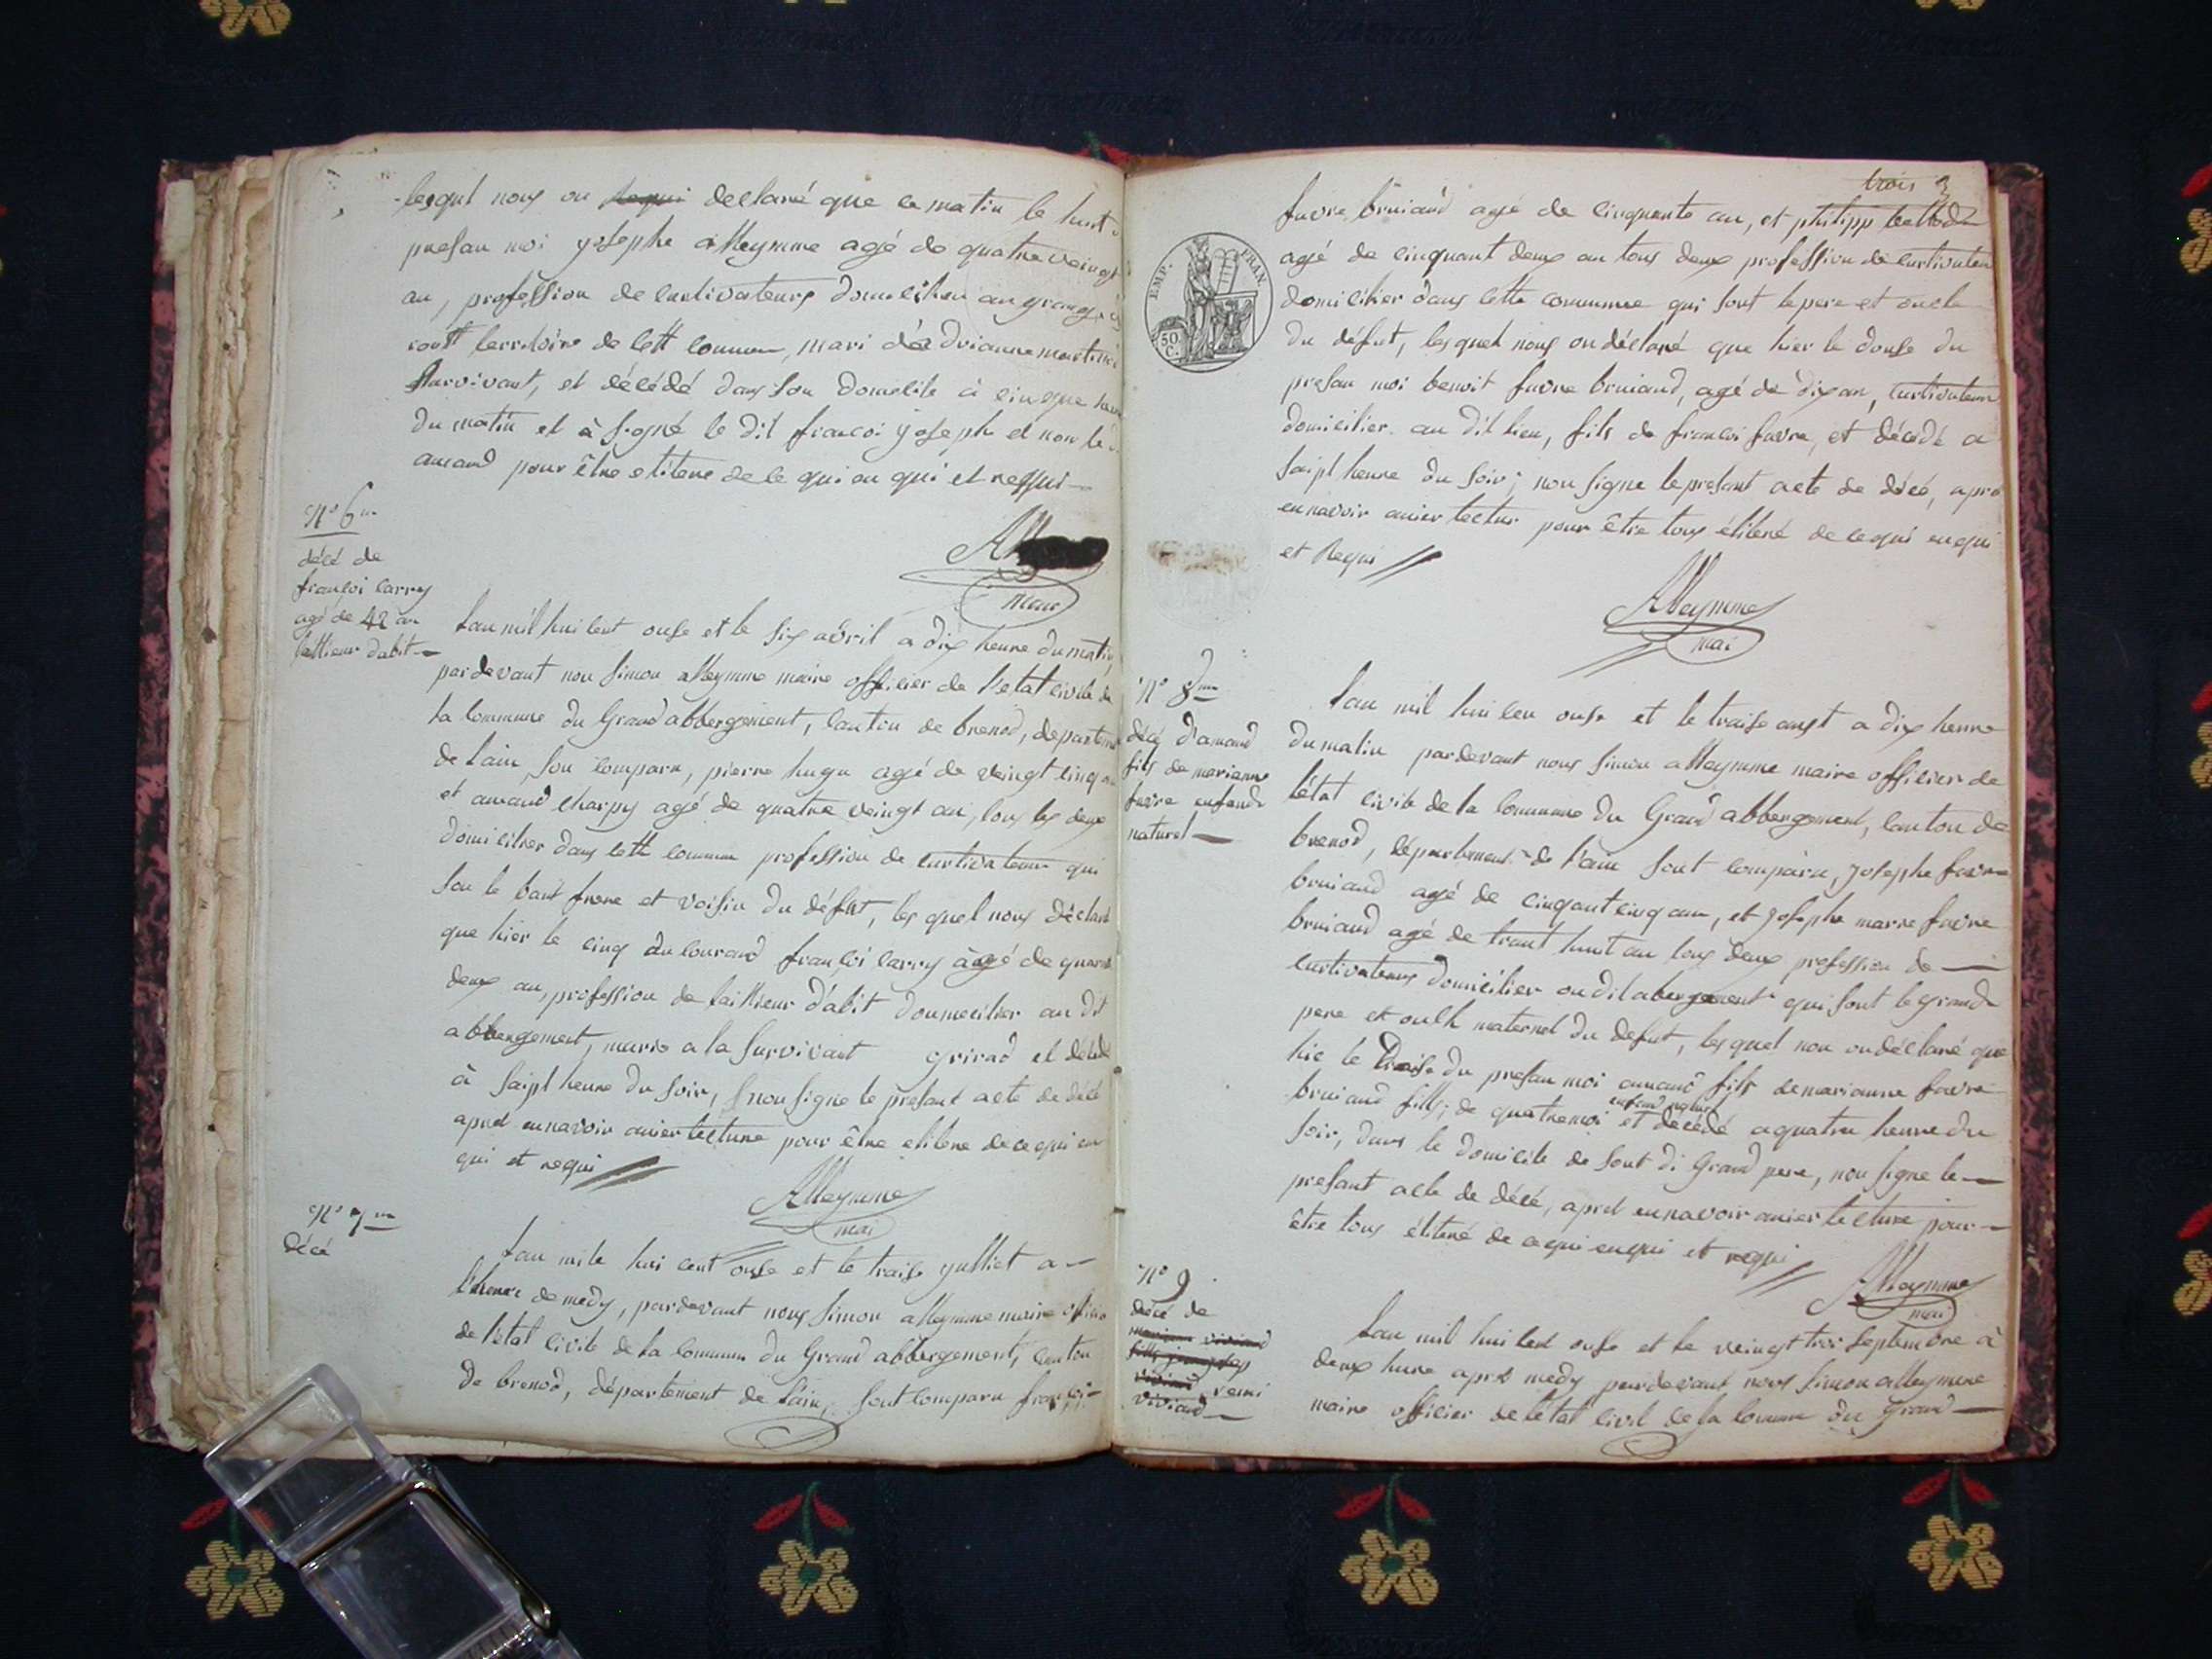 lesqul nous on requi declaré que ce matin le huit
presan moi yosephe alleymme agé de quatre veingt
an, profession de cultivateurs domicilier
territoire de cett commun, mari
survivant, et décédé dans son domicile à cinque
du matin et à signé le dit francoi yoseph et non le
amand pour être elitere de ce qui en qui et requi
mair
N° 6m
décé de
françoi carry
agé de 42 an
taillieur dabit
lan mil hui cent onse et le six avril a dix heure du matin
pardevant nou simon alleymme maire officier de l'etat civile de
la commune du Grand abbergement, canton de brenod, departem
de lain son comparu, pierre hugu agé de veingt cinq an
et amand charpy agé de quatre veingt an, tous les deux
domicilier dans cett commun profession de curtivateur qui
son le baut frere et voisin du défut, les quel nous déclaré
que hier le cinq du courand françoi carry âgé de quarant
deux an, profession de taillieur d'abit doumecilier au dit
abbergement, marie a la survivant grirad et décédé
à saipt heure du soir, nou signe le présant acte de décé
apret ennavoir anier lecture pour être elitere de ce qui en
qui et requi
Alleymme
mai
N° 7m
décé
Lan mile hui cent onse et le traise julliet a
l'heure de medy, pardevant nous simon alleymme maire
de l'etat civile de la commun du Grand abbergement, canton
de brenod, département de l'ain, sont comparu françoi
trois 3
favre bruiand agé de cinquente an, et philipp
agé de cinquant deux an tous deux profession de curtivateur
domicilier dans cette commune qui sont le pere et oncle
du défut, lesquel nous on déclaré que hier le douse du
presan moi benoit favre bruiand, agé de dix an, curtivateur
domicilier au dit lieu, fils de françoi favre, et décédé a
saipt heure du soir; nou signe le presant acte de décé, apré
ennavoir anier lectur pour être tous élitené de ce qui en qui
et Requi
EMP. FRAN.
50 C.
Alleymme
mai
N° 8me
décé d'amand
fils de marianne
favre enfand
naturel
Lan mil hui cen onse et le traise aust a dix heure
du matin pardevant nous simon alleymme maire officier de
l'état civile de la commune du Grand abbergement, canton de
brenod, département de l'ain sont comparu, josephe favre
bruiand agé de cinqant cinq an, et josephe marre favre
bruiand agé de trant huit an tous deux profession de
curtivateurs domicilier au dit abergement qui sont le grand
pere et oulk maternel du defut, lesquel nou on déclaré que
hie le traise du presan moi amand fils de marianne favre
bruiand fille, de quatre moi enfand naturel et décédé a quatre heure du
soir, dans le domicile de sont di Grand pere, nou signe le
presant acte de décé, apret ennavoir anier lecture pour
être tous élitené de ce qui en qui et requi
Alleymme
mai
N° 9
décé de
remi
viviand
Lan mil hui cent onse et le veingt troi septembre à
deux hure apres medy pardevant nous simon alleymme
maire officier de l'état civil de la commun du Grand